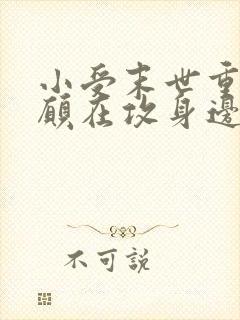 小受末世重
顧在攻身邊
不可說